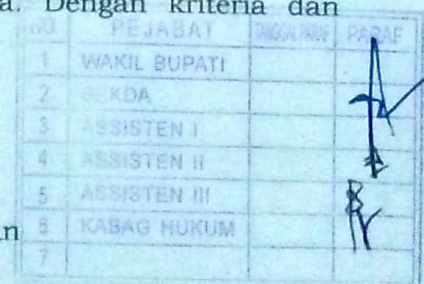 a. Dengan kriteria dan
NO. PEJABAT TANGGAL PARAF PARAF
1 WAKIL BUPATI
2 SEKDA
3 ASSISTEN I
4 ASSISTEN II
5 ASSISTEN III
n 6 KABAG HUKUM
7